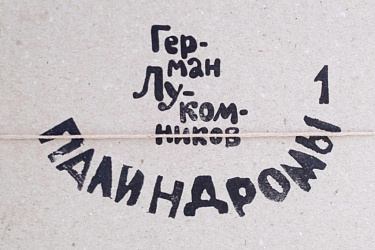 Гер-
ман
Лу-
ком-
ников
ПАЛИНДРОМЫ 1